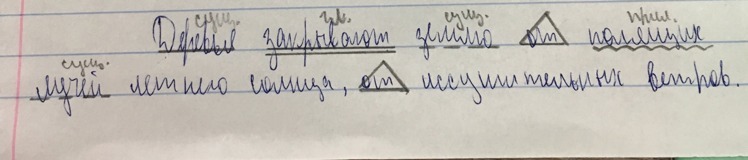 сущ. гл. сущ. прил.
Деревья закрывают землю от палящих
сущ.
лучей летнего солнца, от иссушительных ветров.